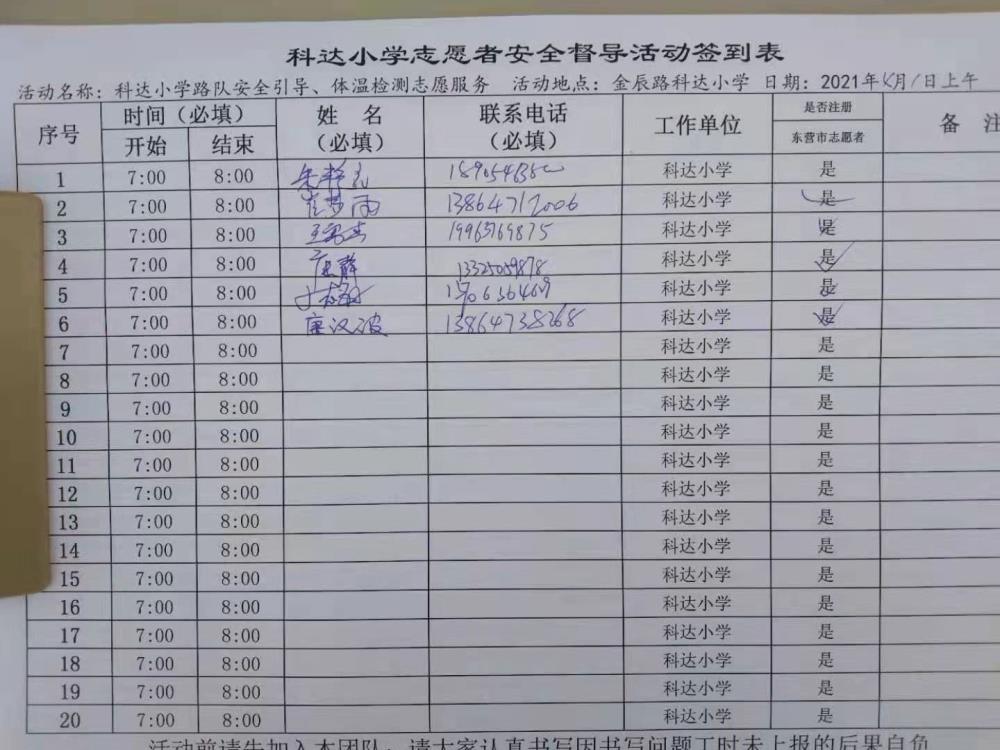 科达小学志愿者安全督导活动签到表
活动名称：科达小学路队安全引导、体温检测志愿服务 活动地点：金辰路科达小学 日期：2021年 月1日上午
序号 时间（必填） 姓 名（必填） 联系电话（必填） 工作单位 是否注册 备 注
开始 结束 东营市志愿者
1 7:00 8:00 科达小学 是
2 7:00 8:00 13864712006 科达小学 是
3 7:00 8:00 19963769875 科达小学 是
4 7:00 8:00 13325059878 科达小学 是
5 7:00 8:00 科达小学 是
6 7:00 8:00 13864738268 科达小学 是
7 7:00 8:00 科达小学 是
8 7:00 8:00 科达小学 是
9 7:00 8:00 科达小学 是
10 7:00 8:00 科达小学 是
11 7:00 8:00 科达小学 是
12 7:00 8:00 科达小学 是
13 7:00 8:00 科达小学 是
14 7:00 8:00 科达小学 是
15 7:00 8:00 科达小学 是
16 7:00 8:00 科达小学 是
17 7:00 8:00 科达小学 是
18 7:00 8:00 科达小学 是
19 7:00 8:00 科达小学 是
20 7:00 8:00 科达小学 是
活动前请先加入本团队；请大家认真书写因书写问题工时未上报的后果自负